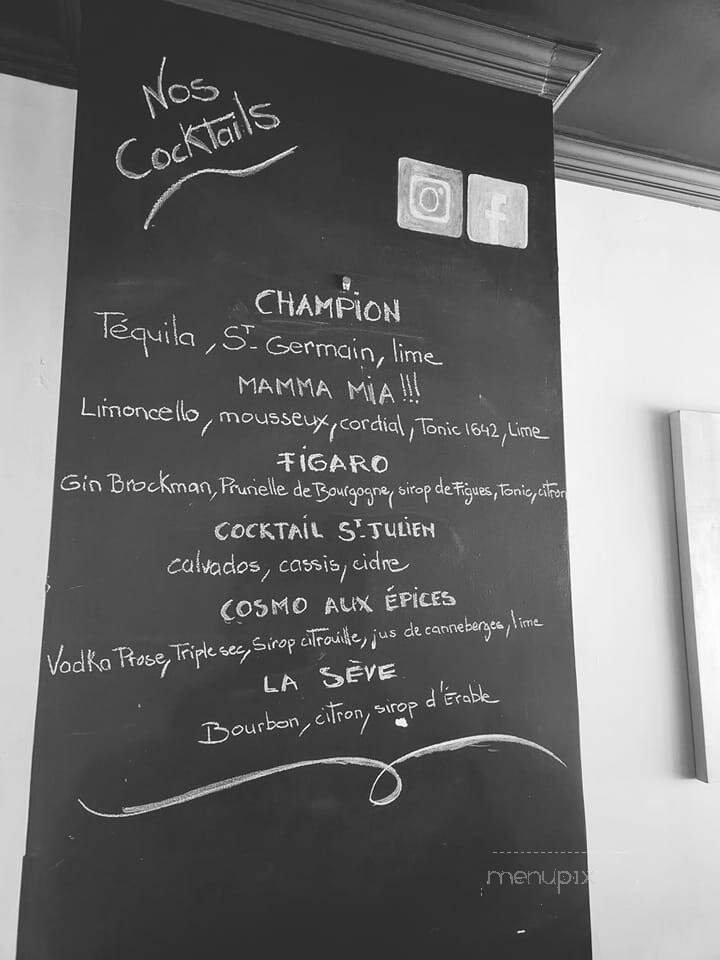 Nos
Cocktails
f
CHAMPiON
Téquila, ST-Germain, lime
MAMMA MiA!!!
Limoncello, mousseux, cordial, Tonic 1642, Lime
FiGARO
Gin Brockman, Prunelle de Bourgogne, sirop de Figues, Tonic, citron
COCKTAiL ST-JULiEN
calvados, cassis, cidre
COSMO AUX ÉPiCES
Vodka Prose, Triple sec, Sirop citrouille, jus de canneberges, lime
LA SÈVE
Bourbon, citron, sirop d'Érable
menupix